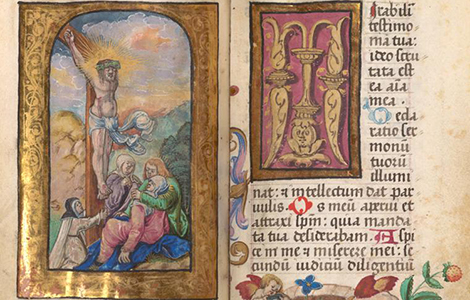 Mirabilia
testimo
nia tua:
ideo scru
tata est
ea aīa
mea.
Decla
ratio ser
monū
tuorū
illumi
nat: & intellectum dat par
vulis. Os meū aperui et
attraxi spm̄: quia manda
ta tua desiderabam. Aspi
ce in me & miserere mei: se
cundū iudiciū diligentiū